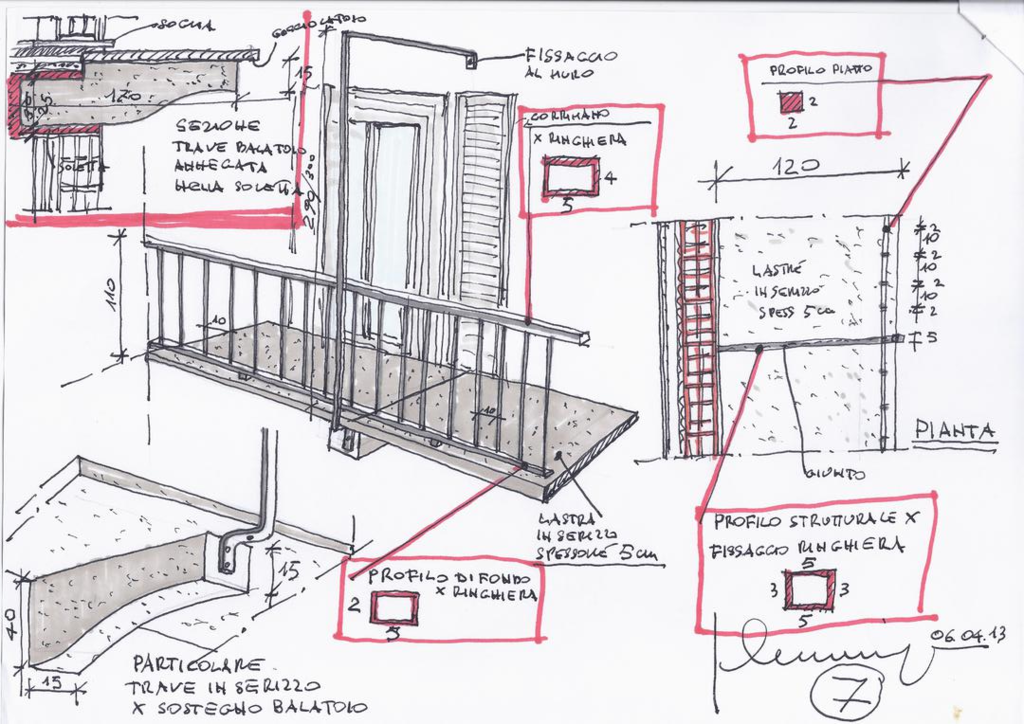 SOGLIA
GOCCIOLATOIO
15
120
25
SOLETTA
SEZIONE
TRAVE BALATOIO
ANNEGATA
NELLA SOLETTA
FISSAGGIO
AL MURO
CORRIMANO
X RINGHIERA
4
5
PROFILO PIATTO
2
2
120
110
10
10
LASTRE
IN SERIZZO
SPESS 5 cm
2
10
2
10
2
10
2
5
PIANTA
GIUNTO
LASTRA
IN SERIZZO
SPESSORE 5 cm
PROFILO DI FONDO
X RINGHIERA
2
3
PROFILO STRUTTURALE X
FISSAGGIO RINGHIERA
5
3
3
5
15
40
15
PARTICOLARE
TRAVE IN SERIZZO
X SOSTEGNO BALATOIO
06.04.13
7